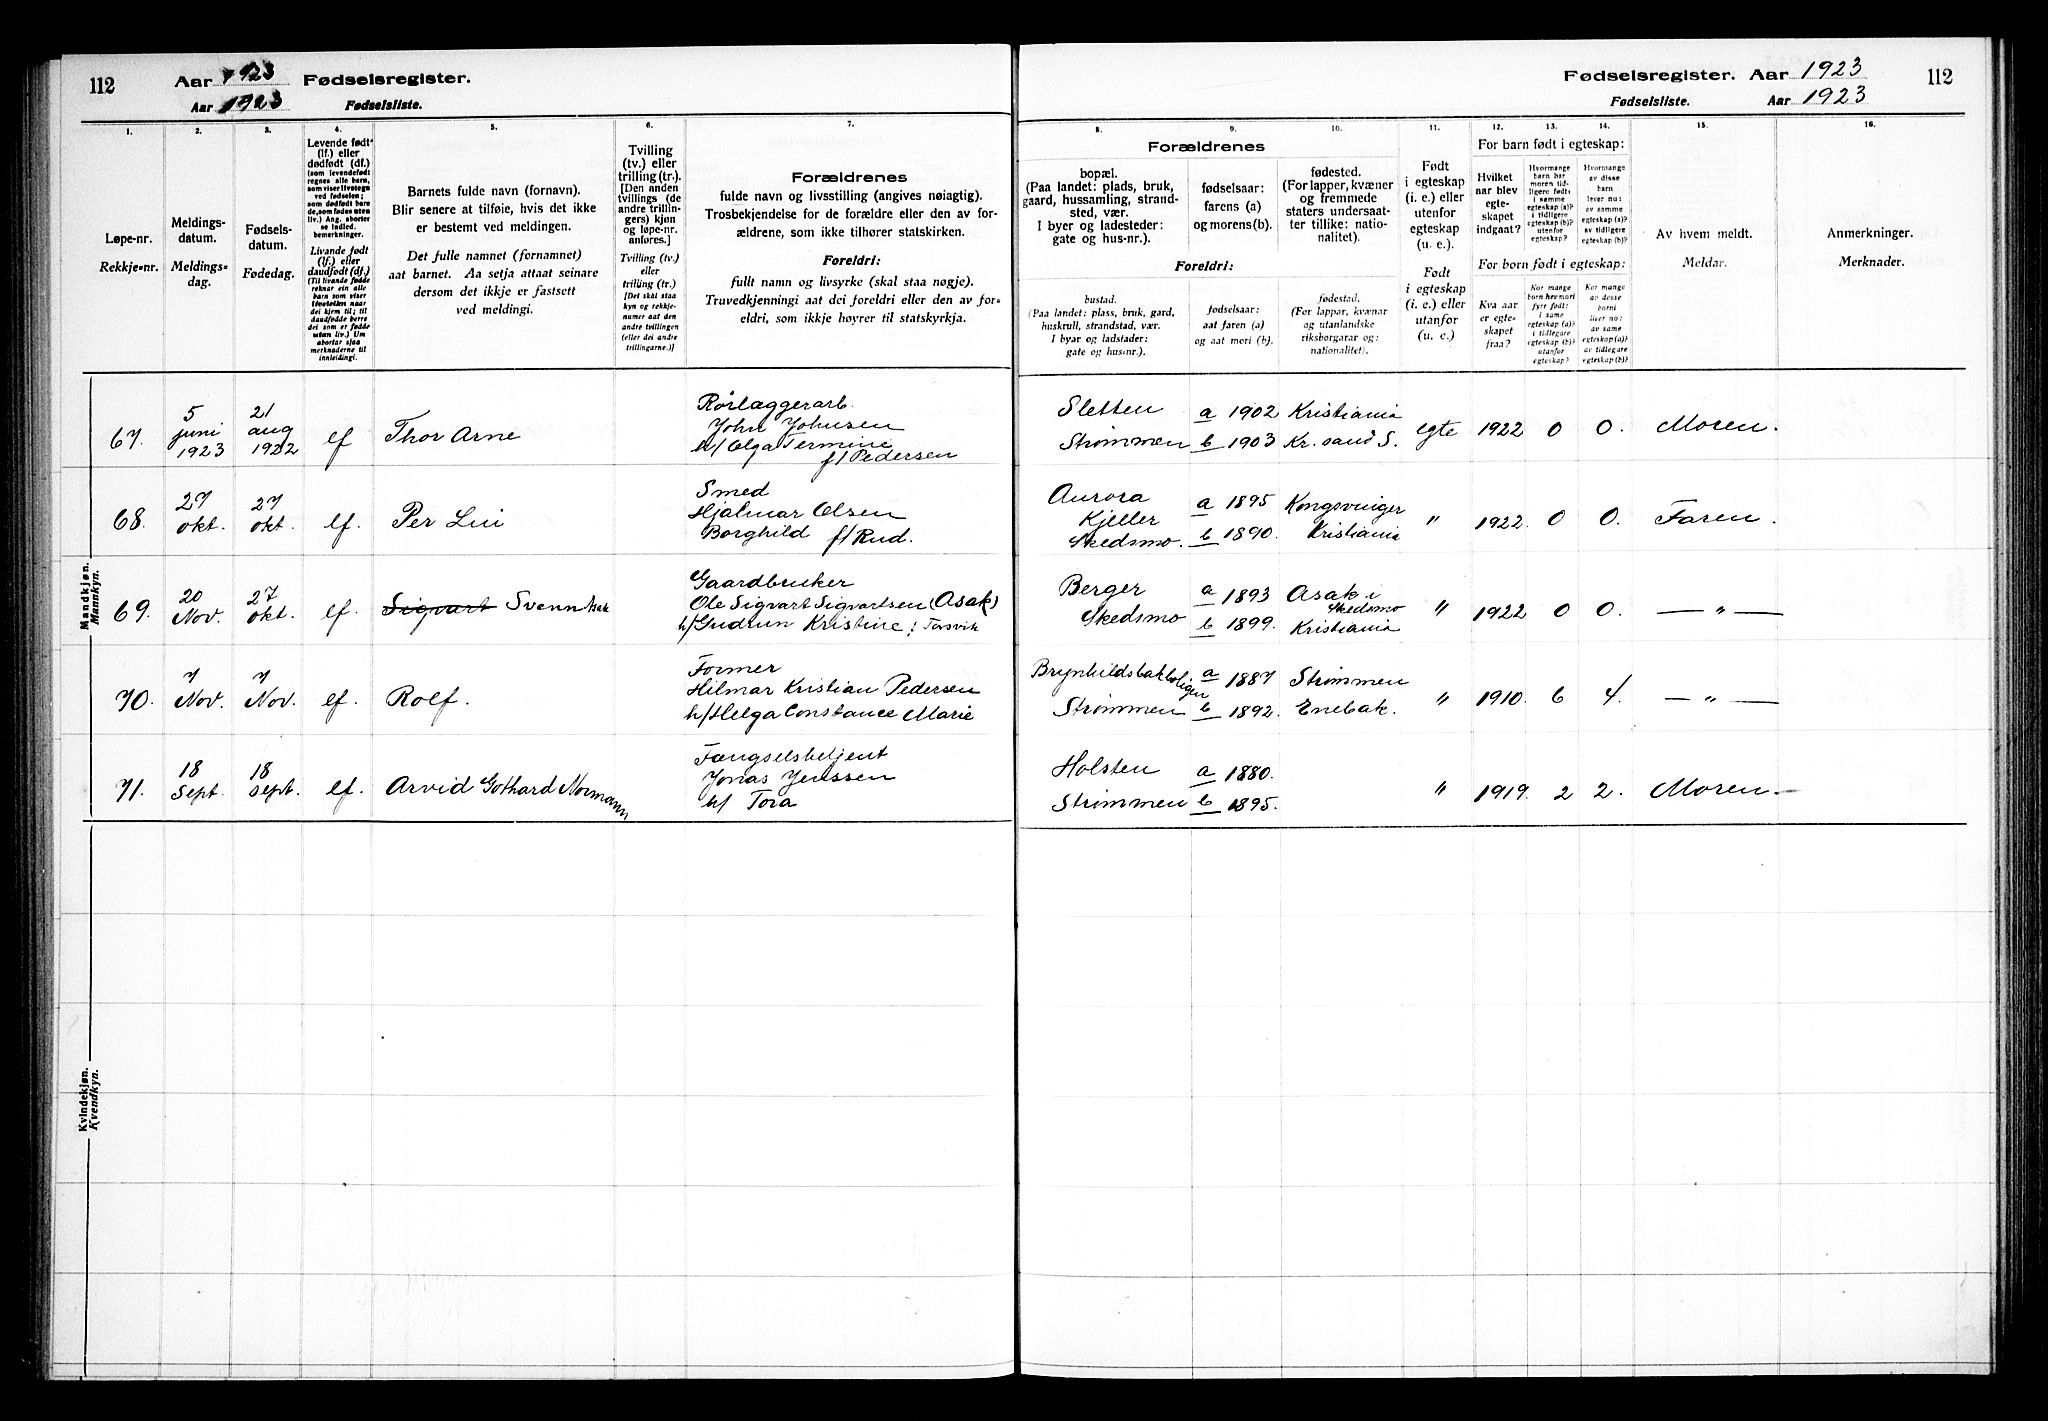 112 Aar 1923 Fødselsregister.
Aar 1923 Fødselsliste.
Fødselsregister. Aar 1923 112
Fødselsliste. Aar 1923
1. 2. 3. 4. 5. 6. 7.
Løpe-nr.
Rekkje-nr.
Meldings-
datum.
Meldings-
dag.
Fødsels-
datum.
Fødedag.
Levende født
(lf.) eller
dødfødt (df.)
(som levendefødt
regnes alle barn,
som viser livstegn
ved fødselen;
som dødfødt bare
de, som fødes uten
liv.) Ang. aborter
se indled.
bemerkninger.
Livande født
(lf.) eller
daudfødt (df.)
(Til livande fødde
reknar ein alle
barn som viser
livsteikn naar
dei kjem til; til
daudfødde berre
dei som er fødde
utan liv.) Um
abortar sjaa
merknaderne til
innleidingi.
Barnets fulde navn (fornavn).
Blir senere at tilføie, hvis det ikke
er bestemt ved meldingen.
Det fulle namnet (fornamnet)
aat barnet. Aa setja attaat seinare
dersom det ikkje er fastsett
ved meldingi.
Tvilling
(tv.) eller
trilling (tr.).
[Den anden
tvillings (de
andre trillin-
gers) kjøn
og løpe-nr.
anføres.]
Tvilling (tv.)
eller
trilling (tr.)
[Det skal staa
kyn og rekkje-
numer aat den
andre tvillingen
(eller dei andre
trillingarne.)]
Forældrenes
fulde navn og livsstilling (angives nøiagtig).
Trosbekjendelse for de forældre eller den av for-
ældrene, som ikke tilhører statskirken.
Foreldri:
fullt namn og livsyrke (skal staa nøgje).
Truvedkjenningi aat dei foreldri eller den av for-
eldri, som ikkje høyrer til statskyrkja.
8. 9. 10. 11. 12. 13. 14. 15. 16.
Forældrenes
bopæl.
(Paa landet: plads, bruk,
gaard, hussamling, strand-
sted, vær.
I byer og ladesteder:
gate og hus-nr.).
fødselsaar:
farens (a)
og morens (b).
fødested.
(For lapper, kvæner
og fremmede
staters undersaat-
ter tillike: natio-
nalitet).
Foreldri:
bustad.
(Paa landet: plass, bruk, gard,
huskrull, strandstad, vær.
I byar og ladstader:
gate og hus-nr.).
fødselsaar:
aat faren (a)
og aat mori (b).
fødestad.
(For lappar, kvænar
og utanlandske
riksborgarar og:
nationalitet).
Født
i egteskap
(i. e.) eller
utenfor
egteskap
(u. e.).
Født
i egteskap
(i. e.) eller
utanfor
(u. e.)
For barn født i egteskap:
Hvilket
aar blev
egte-
skapet
indgaat?
Hvormange
barn har
moren tid-
ligere født:
i samme
egteskap (a)?
i tidligere
egteskap (b)?
utenfor
egteskap?
Hvormange
av disse
barn
lever nu:
av samme
egteskap (a)?
av tidligere
egteskap (b)?
For born født i egteskap:
Kva aar
er egte-
skapet
fraa?
Kor mange
born hev mori
fyrr født:
i same
egteskap (a)?
i tidlegare
egteskap (b)?
utanfor
egteskap?
Kor mange
av desse
borni
liver no:
av same
egteskap (a)?
av tidlegare
egteskap (b)?
Av hvem meldt.
Meldar.
Anmerkninger.
Merknader.
Mandkjøn.
Mannkyn.
67. 5 juni 1923 21 aug 1922 lf Thor Arne
Rørlæggerarb.
John Johnsen
h/ Olga Termine
f/ Pedersen
Sletten a 1902 Kristiania
Strømmen b 1903 Kr. sand S. egte 1922 0 0. Moren.
68. 27 okt. 27 okt. lf. Per Lui
Smed
Hjalmar Olsen
Borghild f/ Rud.
Aurora a 1895 Kongsvinger
Kjeller
Skedsmo. b 1890. Kristiania " 1922. 0 0. Faren.
69. 20 Nov. 27 okt. lf. Sigvart Svenn
Gaardbruker
Ole Sigvart Sigvartsen (Asak)
h/ Gudrun Kristine f Torsvik
Berger a 1893 Asak i Skedsmo
Skedsmo b 1899. Kristiania " 1922 0 0. — " —
70. 7 Nov. 7 Nov. lf. Rolf.
Former
Hilmar Kristian Pedersen
h/ Helga Constance Marie
Brynhildsbakboliger a 1887 Strømmen
Strømmen b 1892. Enebak. " 1910. 6 4. — " —
71. 18 Sept. 18 sept. lf. Arvid Gothard Normann
Fængselsbetjent
Jonas Jenssen
h/ Tora
Holsten a 1880.
Strømmen b 1895. " 1919. 2 2. Moren.
Kvindekjøn.
Kvendkyn.